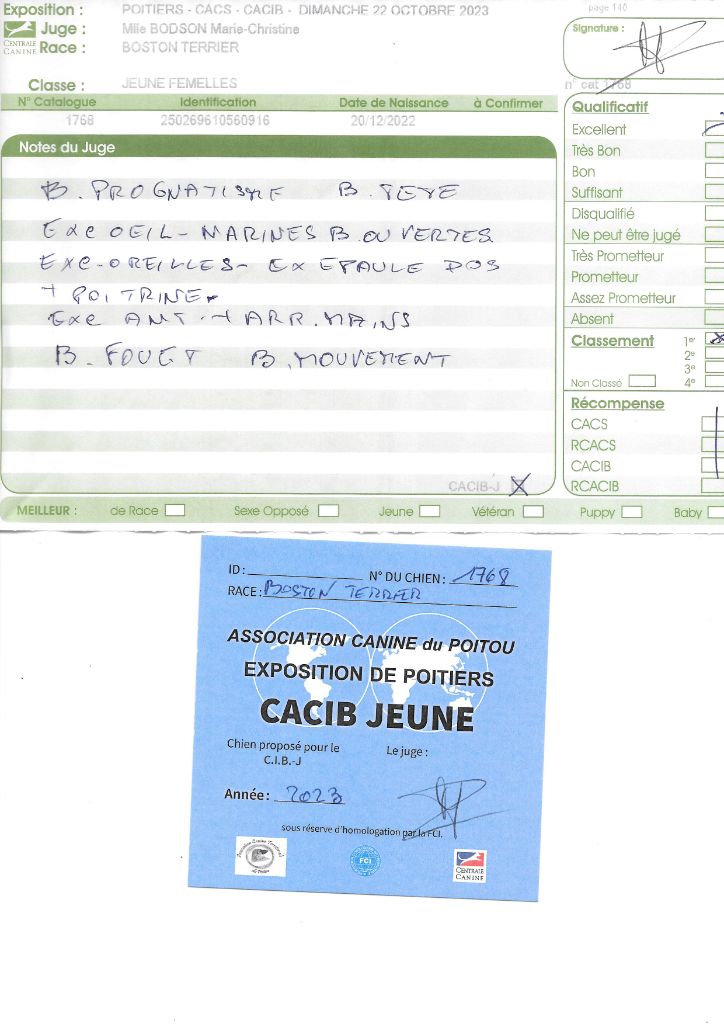 Exposition : POITIERS - CACS - CACIB - DIMANCHE 22 OCTOBRE 2023
page 140
Juge : Mlle BODSON Marie-Christine
Signature :
CENTRALE CANINE
Race : BOSTON TERRIER
Classe : JEUNE FEMELLES
n° cat 1768
N° Catalogue Identification Date de Naissance à Confirmer
1768 250269610560916 20/12/2022
Notes du Juge
B. PROGNATISME B. TETE
EXC OEIL - NARINES B. OUVERTES
EXC - OREILLES - EX EPAULE DOS
+ POITRINE
EXC ANT + ARR. MAINS
B. FOUET B. MOUVEMENT
CACIB-J
Qualificatif
Excellent
Très Bon
Bon
Suffisant
Disqualifié
Ne peut être jugé
Très Prometteur
Prometteur
Assez Prometteur
Absent
Classement 1er
2e
3e
Non Classé 4e
Récompense
CACS
RCACS
CACIB
RCACIB
MEILLEUR : de Race Sexe Opposé Jeune Vétéran Puppy Baby
ID : N° DU CHIEN : 1768
RACE : BOSTON TERRIER
ASSOCIATION CANINE du POITOU
EXPOSITION DE POITIERS
CACIB JEUNE
Chien proposé pour le
C.I.B.-J
Le juge :
Année : 2023
sous réserve d'homologation par la FCI.
FCI
CENTRALE
CANINE